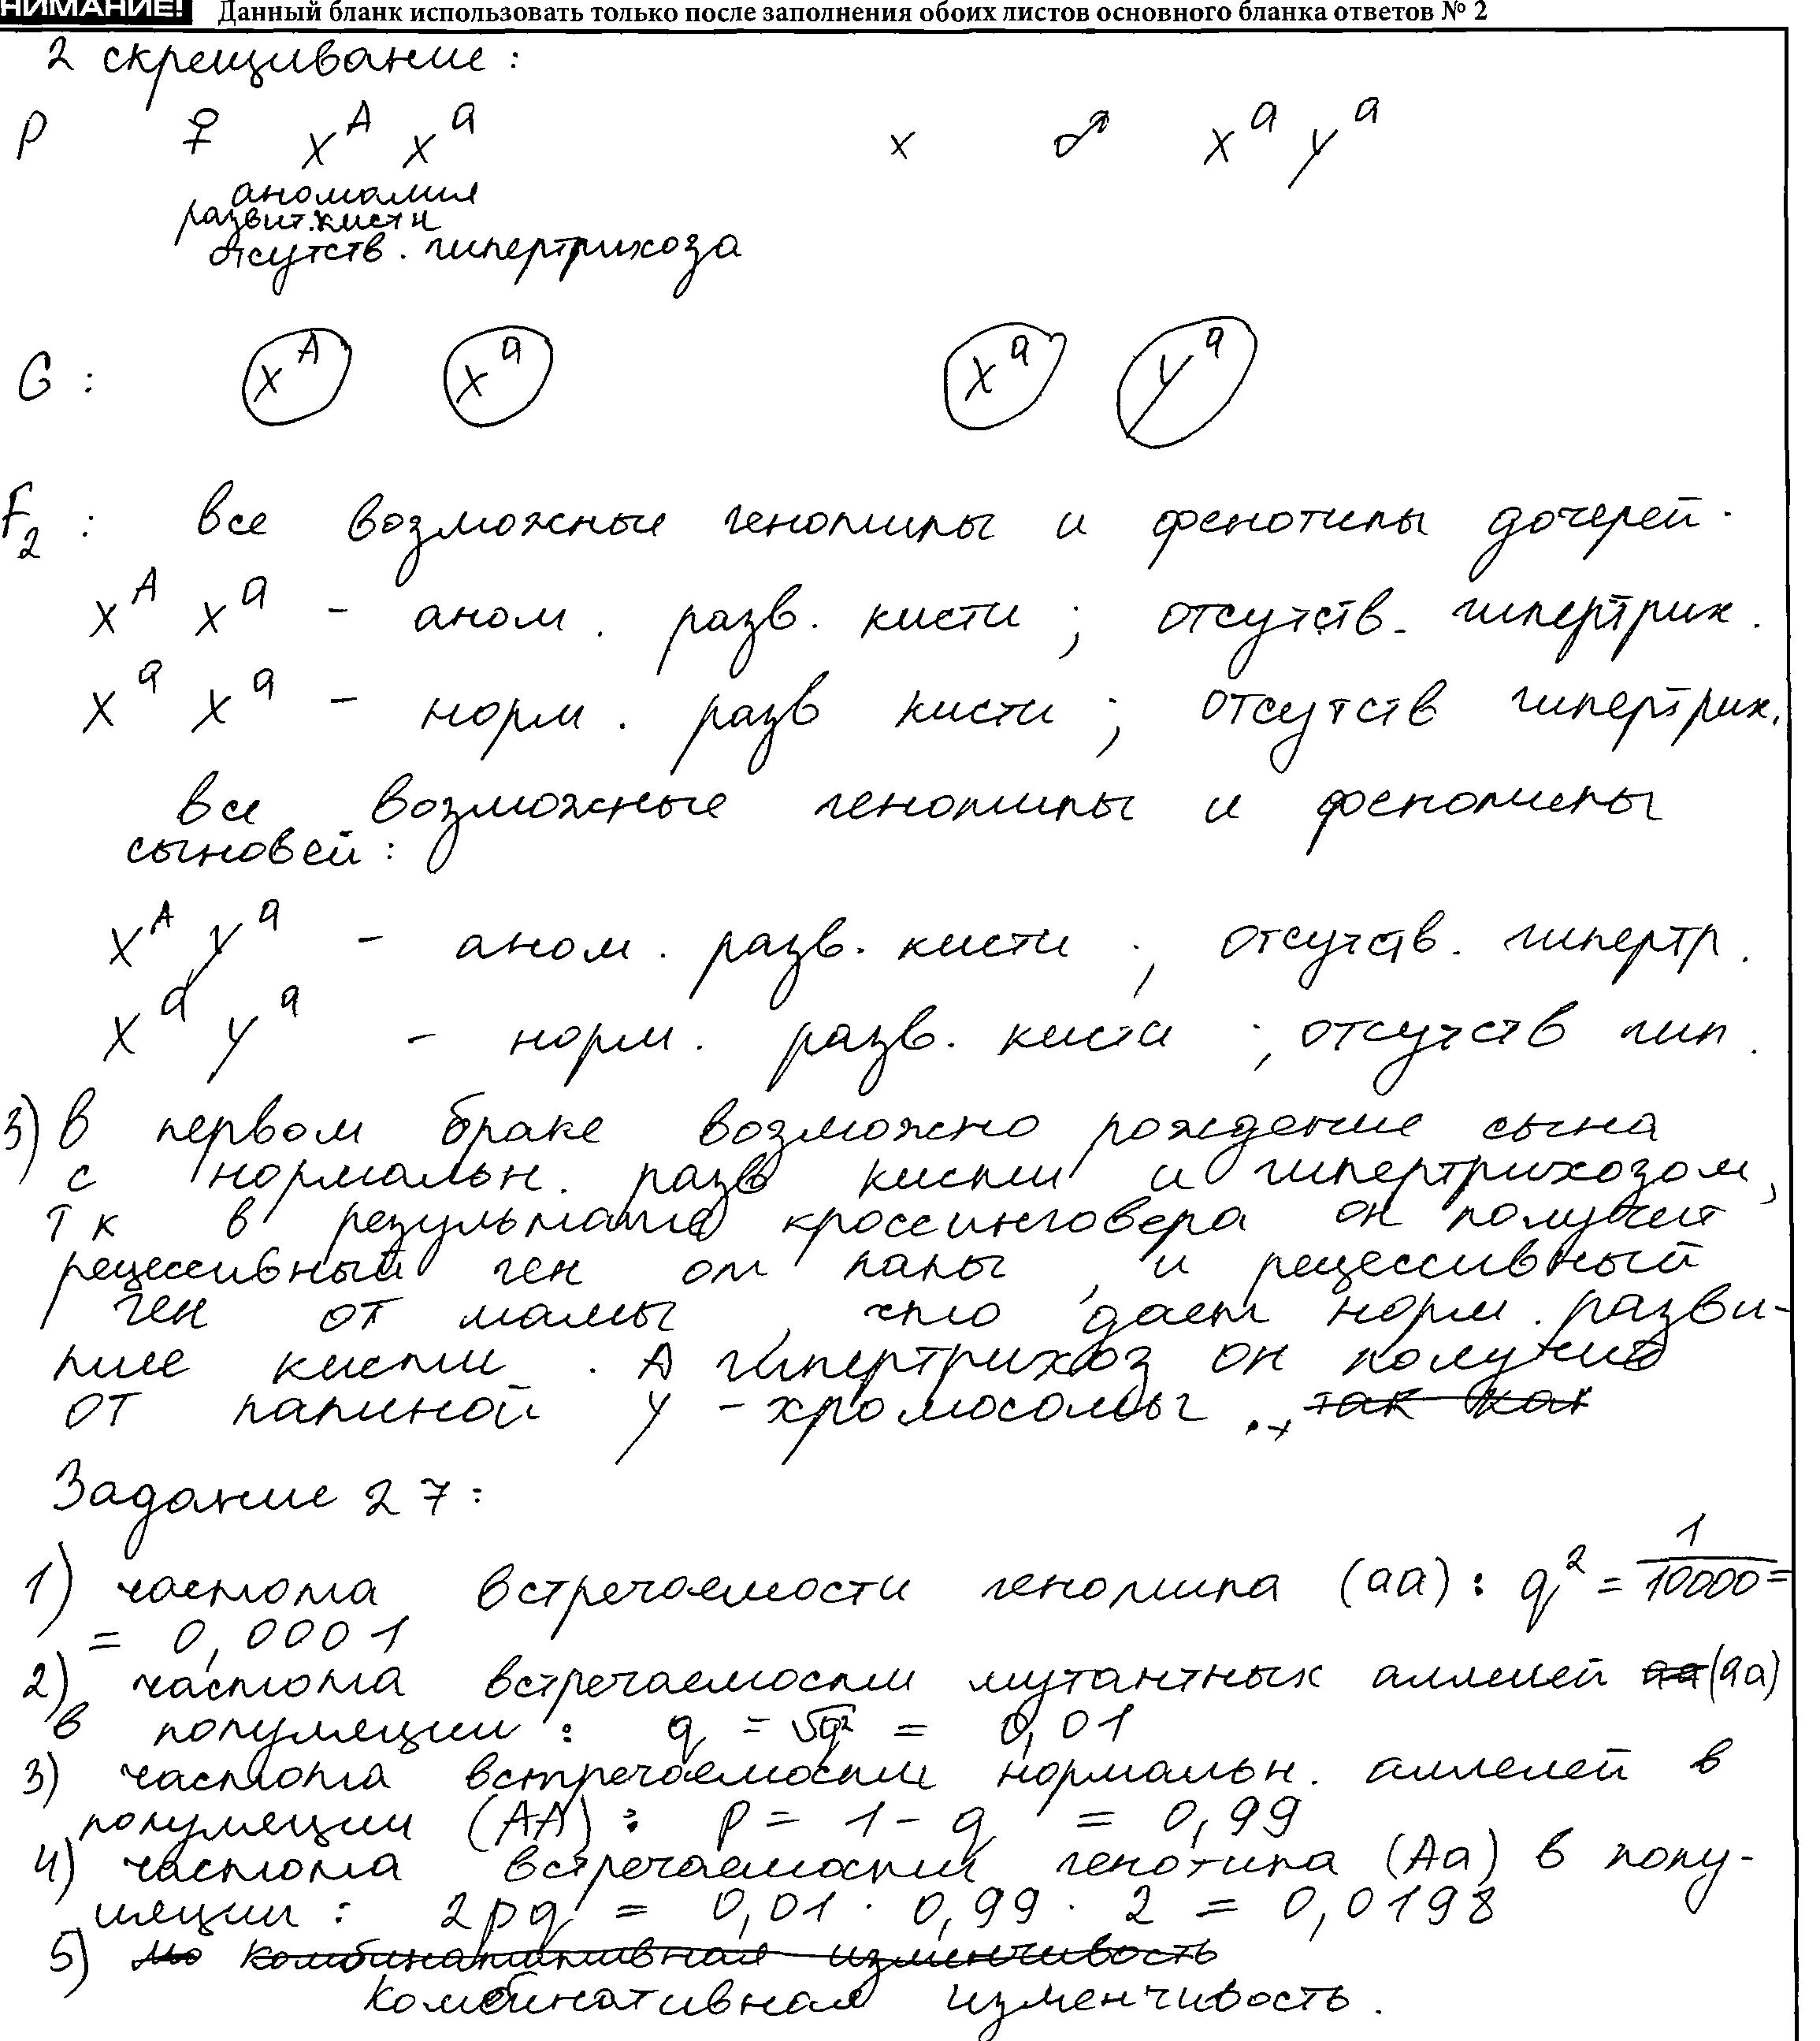 ВНИМАНИЕ! Данный бланк использовать только после заполнения обоих листов основного бланка ответов № 2
2 скрещивание :
P ♀ X^A X^a x ♂ X^a Y^a
аномалия
развит. кисти
отсутств. гипертрихоза
G : X^A X^a X^a Y^a
F2 : все возможные генотипы и фенотипы дочерей.
X^A X^a - аном. разв. кисти ; отсутств. гипертрих.
X^a X^a - норм. разв кисти ; отсутств гипертрих.
все возможные генотипы и фенотипы
сыновей :
X^A Y^a - аном. разв. кисти ; отсутств. гипертр.
X^a Y^a - норм. разв. кисти ; отсутств гип.
3) В первом браке возможно рождение сына
с нормальн. разв кисти и гипертрихозом,
т к в результате кроссинговера он получит
рецессивный ген от папы , и рецессивный
ген от мамы , что дает норм. разви-
тие кисти . А гипертрихоз он получит
от папиной Y - хромосомы . , так как
Задание 27 :
1) частота встречаемости генотипа (aa) : q² = 1/10000 =
= 0,0001
2) частота встречаемости мутантных аллелей aa (aa)
в популяции : q = √q² = 0,01
3) частота встречаемости нормальн. аллелей в
популяции (AA) : p = 1 - q = 0,99
4) частота встречаемости генотипа (Aa) в попу-
ляции : 2pq = 0,01 · 0,99 · 2 = 0,0198
5) мо комбинативная изменчивость
комбинативная изменчивость.